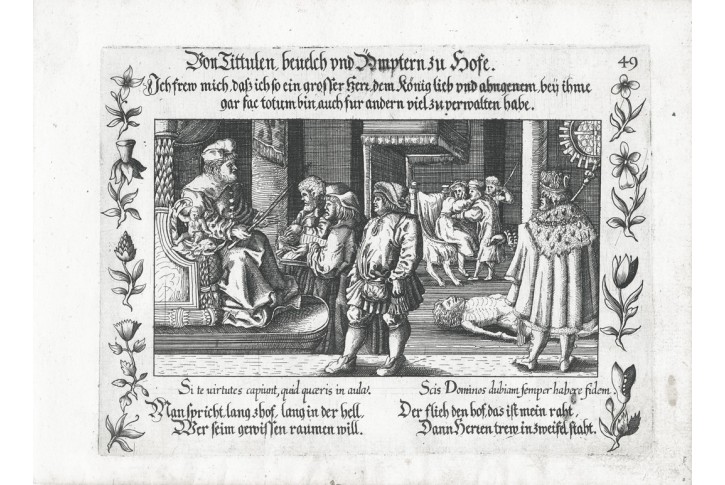 Von Tittulen, beuelch vnd Ämptern zu Hofe.
49
Ich frew mich, daß ich so ein grosser Herr, dem König lieb vnd abngenem, beÿ ihme
gar fac totum bin, auch fur andern viel zu verwalten habe.
Si te uirtutes capiunt, quid quæris in aula.
Scis Dominos dubiam semper habere fidem.
Man spricht lang z hof, lang in der hell,
Der flieh den hof, das ist mein raht,
Wer seim gewissen raumen will.
Dann Herren trew in zweifel staht.